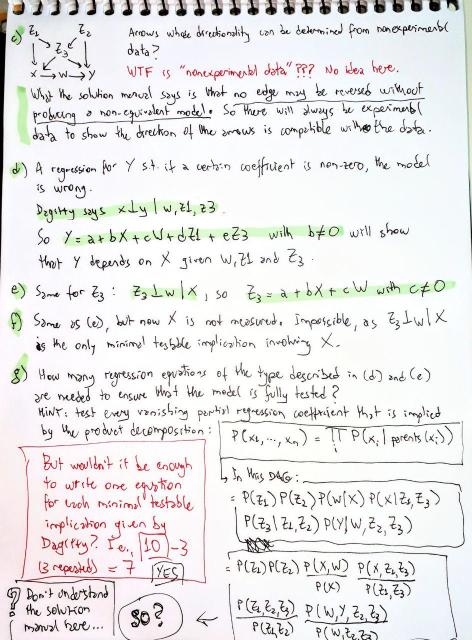 c) Z1 Z2 Z3 X → W → Y
Arrows whose directionality can be determined from nonexperimental
data?
WTF is "nonexperimental data"??? No idea here.
What the solution manual says is that no edge may be reversed without
producing a non-equivalent model. So there will always be experimental
data to show the direction of the arrows is compatible with the data.
d) A regression for Y s.t. if a certain coefficient is non-zero, the model
is wrong.
Dagitty says X⊥Y | W, Z1, Z3.
So Y = a + bX + cW + dZ1 + eZ3 with b≠0 will show
that Y depends on X given W, Z1 and Z3.
e) Same for Z3: Z3⊥W | X, so Z3 = a + bX + cW with c≠0
f) Same as (e), but now X is not measured. Impossible, as Z3⊥W | X
is the only minimal testable implication involving X.
g) How many regression equations of the type described in (d) and (e)
are needed to ensure that the model is fully tested?
HINT: test every vanishing partial regression coefficient that is implied
by the product decomposition:
P(x1, ..., xn) = ∏i P(xi | parents(xi))
But wouldn't it be enough
to write one equation
for each minimal testable
implication given by
Dagitty? I.e., 10 - 3
(3 repeated) = 7 YES
? Don't understand
the solution
manual here...
In this DAG:
= P(Z1) P(Z2) P(W|X) P(X|Z1, Z3)
P(Z3|Z1, Z2) P(Y|W, Z2, Z3)
= P(Z1) P(Z2) P(X,W)/P(X) P(X, Z1, Z3)/P(Z1, Z3)
P(Z1, Z2, Z3) P(W, Y, Z2, Z3)
P(W, Z2, Z3)
SO? ←